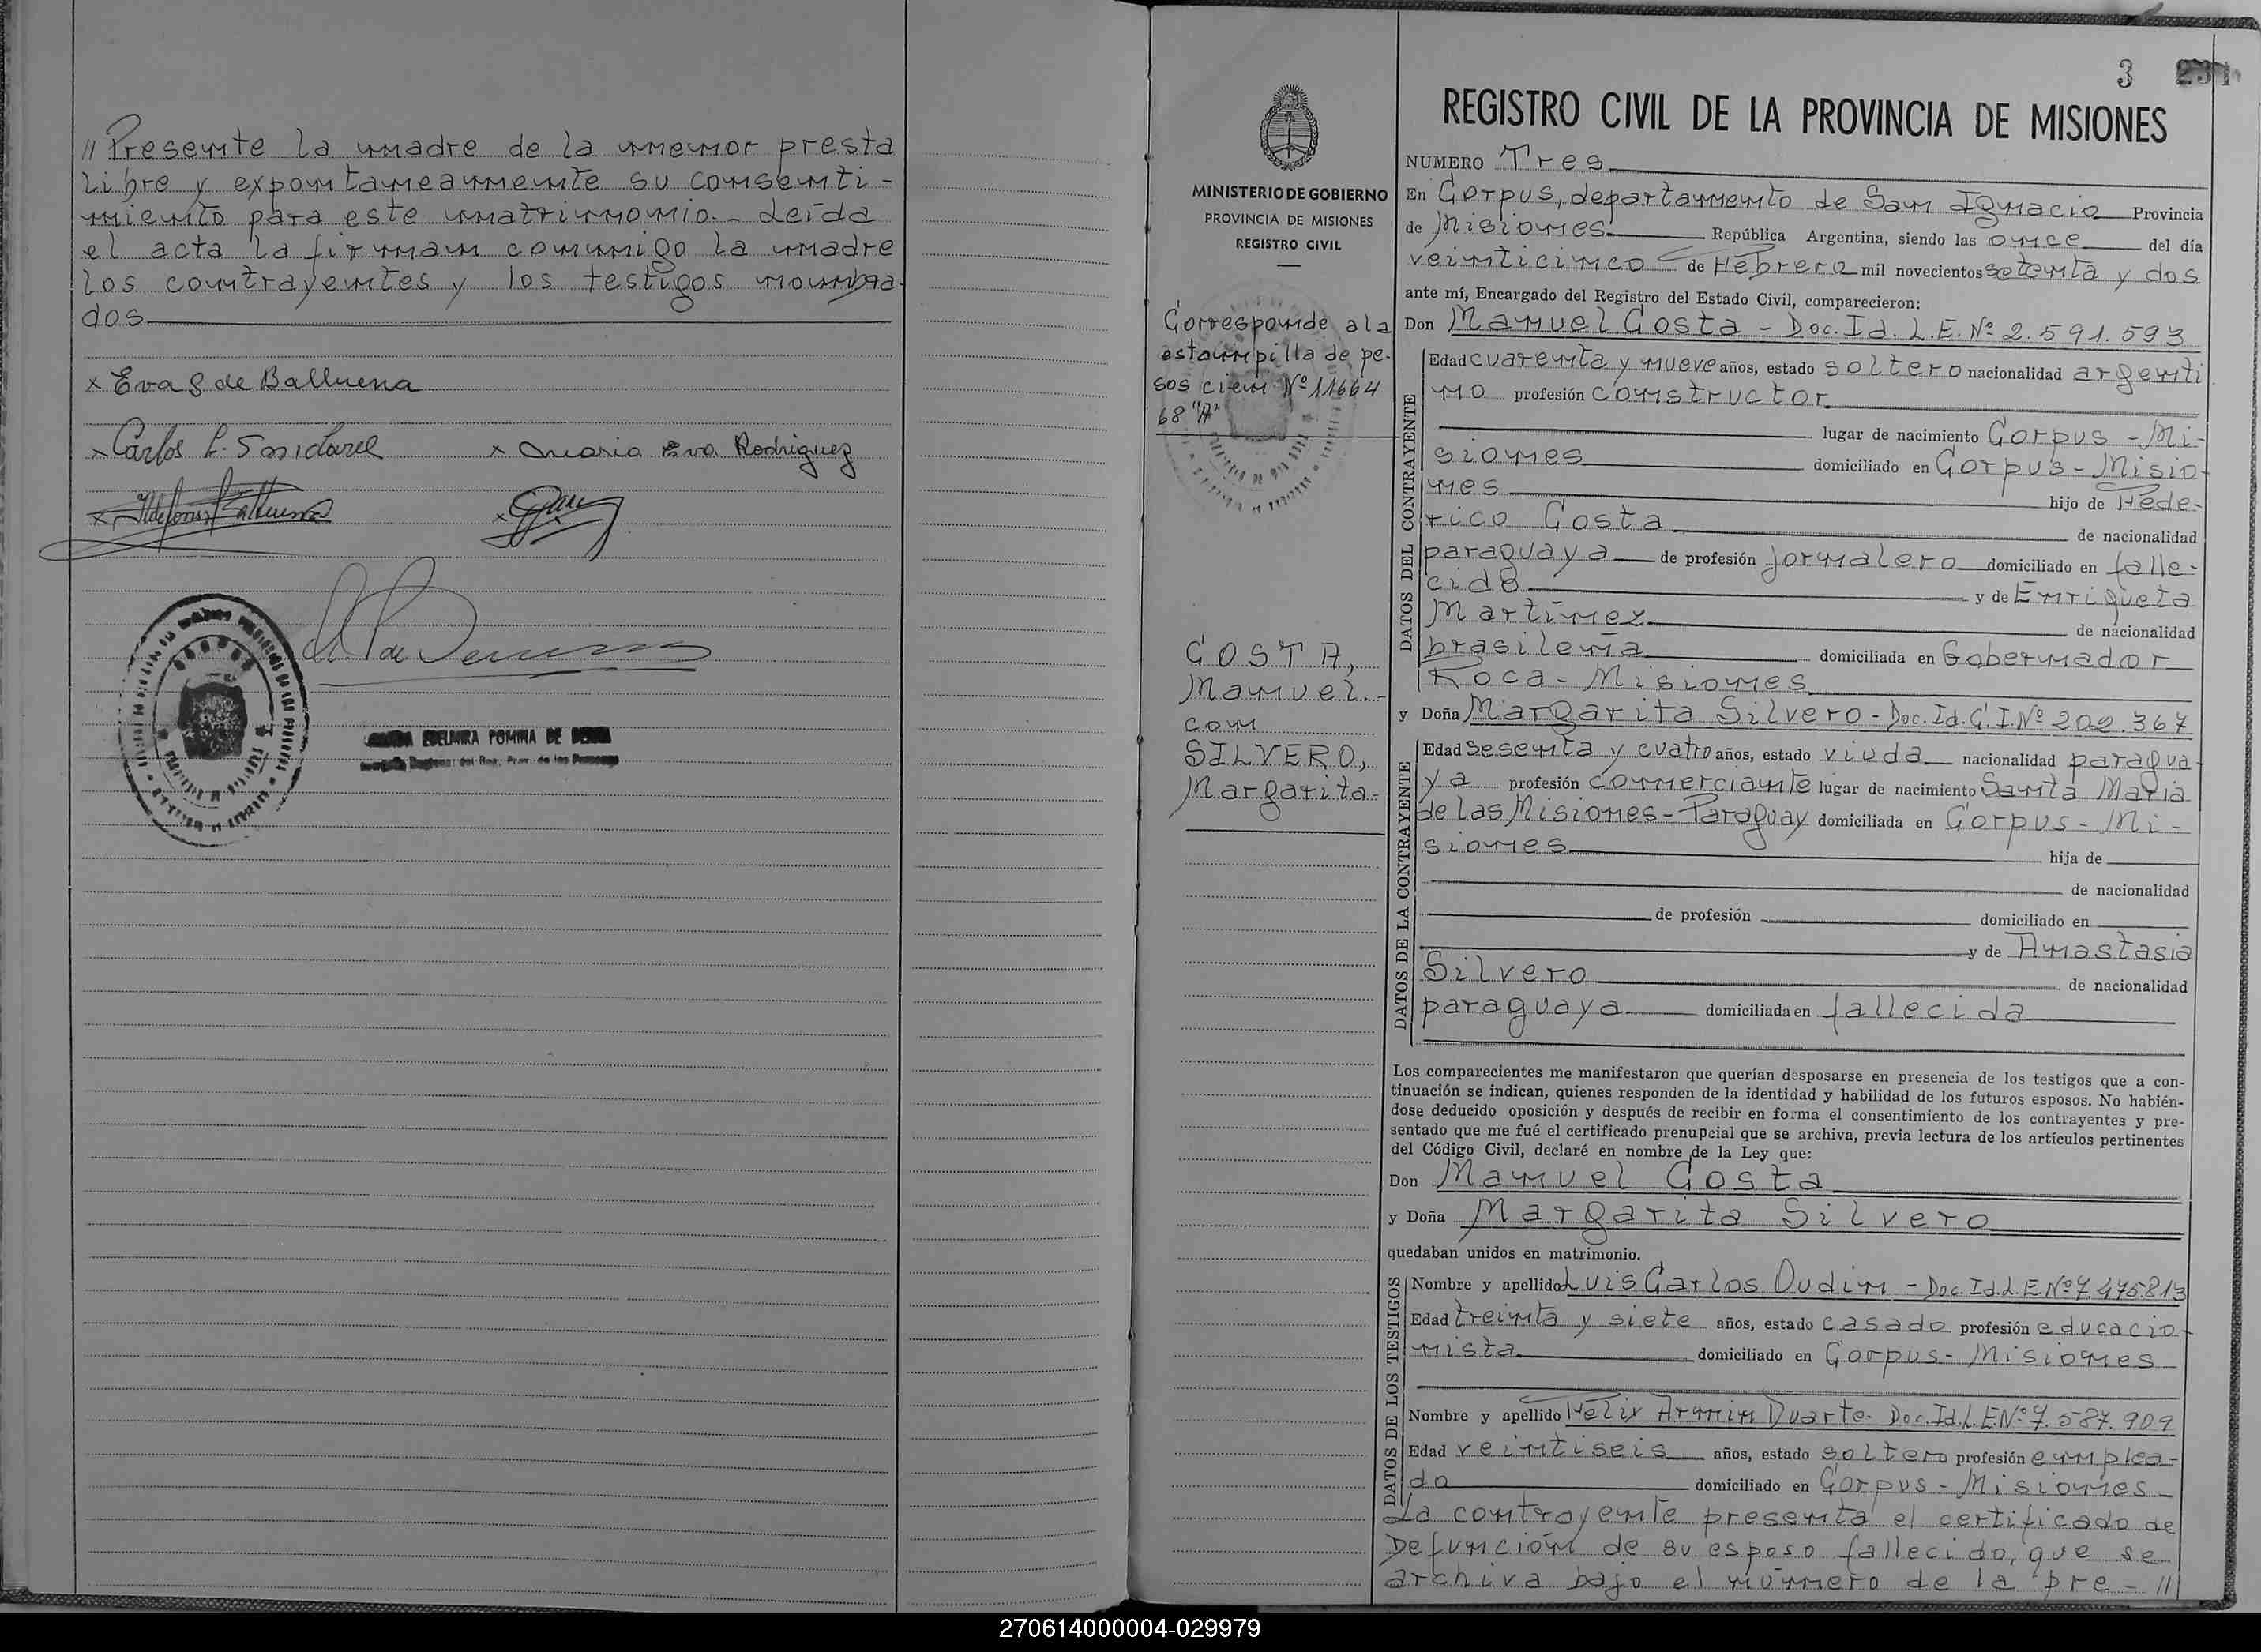 // Presente la madre de la menor presta
libre y expontaneamemente su consenti-
miento para este matrimonio.- Leída
el acta la firman conmigo la madre
los contrayentes y los testigos nombra-
dos
x Eva S de Balbuena
x Carlos
x Maria Eva Rodriguez
x Ildefonso Balbuena
EDELMIRA POMINA DE
3
REGISTRO CIVIL DE LA PROVINCIA DE MISIONES
MINISTERIO DE GOBIERNO
PROVINCIA DE MISIONES
REGISTRO CIVIL
Corresponde a la
estampilla de pe-
sos cien Nº 11664
68 "A"
COSTA,
Manuel.-
con
SILVERO,
Margarita.-
NUMERO Tres
En Corpus, departamento de San Ignacio Provincia
de Misiones República Argentina, siendo las once del día
veinticinco de Febrero mil novecientos setenta y dos
ante mí, Encargado del Registro del Estado Civil, comparecieron:
Don Manuel Costa - Doc. Id. L.E. Nº 2.591.593
DATOS DEL CONTRAYENTE
Edad cuarenta y nueve años, estado soltero nacionalidad argenti
no profesión constructor
lugar de nacimiento Corpus - Mi-
siones domiciliado en Corpus - Misio-
nes hijo de Fede-
rico Costa
de nacionalidad
paraguaya de profesión jornalero domiciliado en falle-
cido y de Enriqueta
Martínez de nacionalidad
brasileña domiciliada en Gobernador
Roca - Misiones
y Doña Margarita Silvero - Doc. Id. C.I. Nº 202.367
DATOS DE LA CONTRAYENTE
Edad sesenta y cuatro años, estado viuda nacionalidad paragua-
ya profesión comerciante lugar de nacimiento Santa María
de las Misiones - Paraguay domiciliada en Corpus - Mi-
siones hija de
de nacionalidad
de profesión domiciliado en
y de Anastasia
Silvero de nacionalidad
paraguaya domiciliada en fallecida
Los comparecientes me manifestaron que querían desposarse en presencia de los testigos que a con-
tinuación se indican, quienes responden de la identidad y habilidad de los futuros esposos. No habién-
dose deducido oposición y después de recibir en forma el consentimiento de los contrayentes y pre-
sentado que me fué el certificado prenupcial que se archiva, previa lectura de los artículos pertinentes
del Código Civil, declaré en nombre de la Ley que:
Don Manuel Costa
y Doña Margarita Silvero
quedaban unidos en matrimonio.
DATOS DE LOS TESTIGOS
Nombre y apellido Luis Carlos Dudin - Doc. Id. L.E Nº 7.475.813
Edad treinta y siete años, estado casado profesión educacio-
nista domiciliado en Corpus - Misiones
Nombre y apellido Felix Armin Duarte - Doc. Id. L.E Nº 7.587.909
Edad veintiseis años, estado soltero profesión emplea-
do domiciliado en Corpus - Misiones
La contrayente presenta el certificado de
Defunción de su esposo fallecido, que se
archiva bajo el número de la pre- //
270614000004-029979